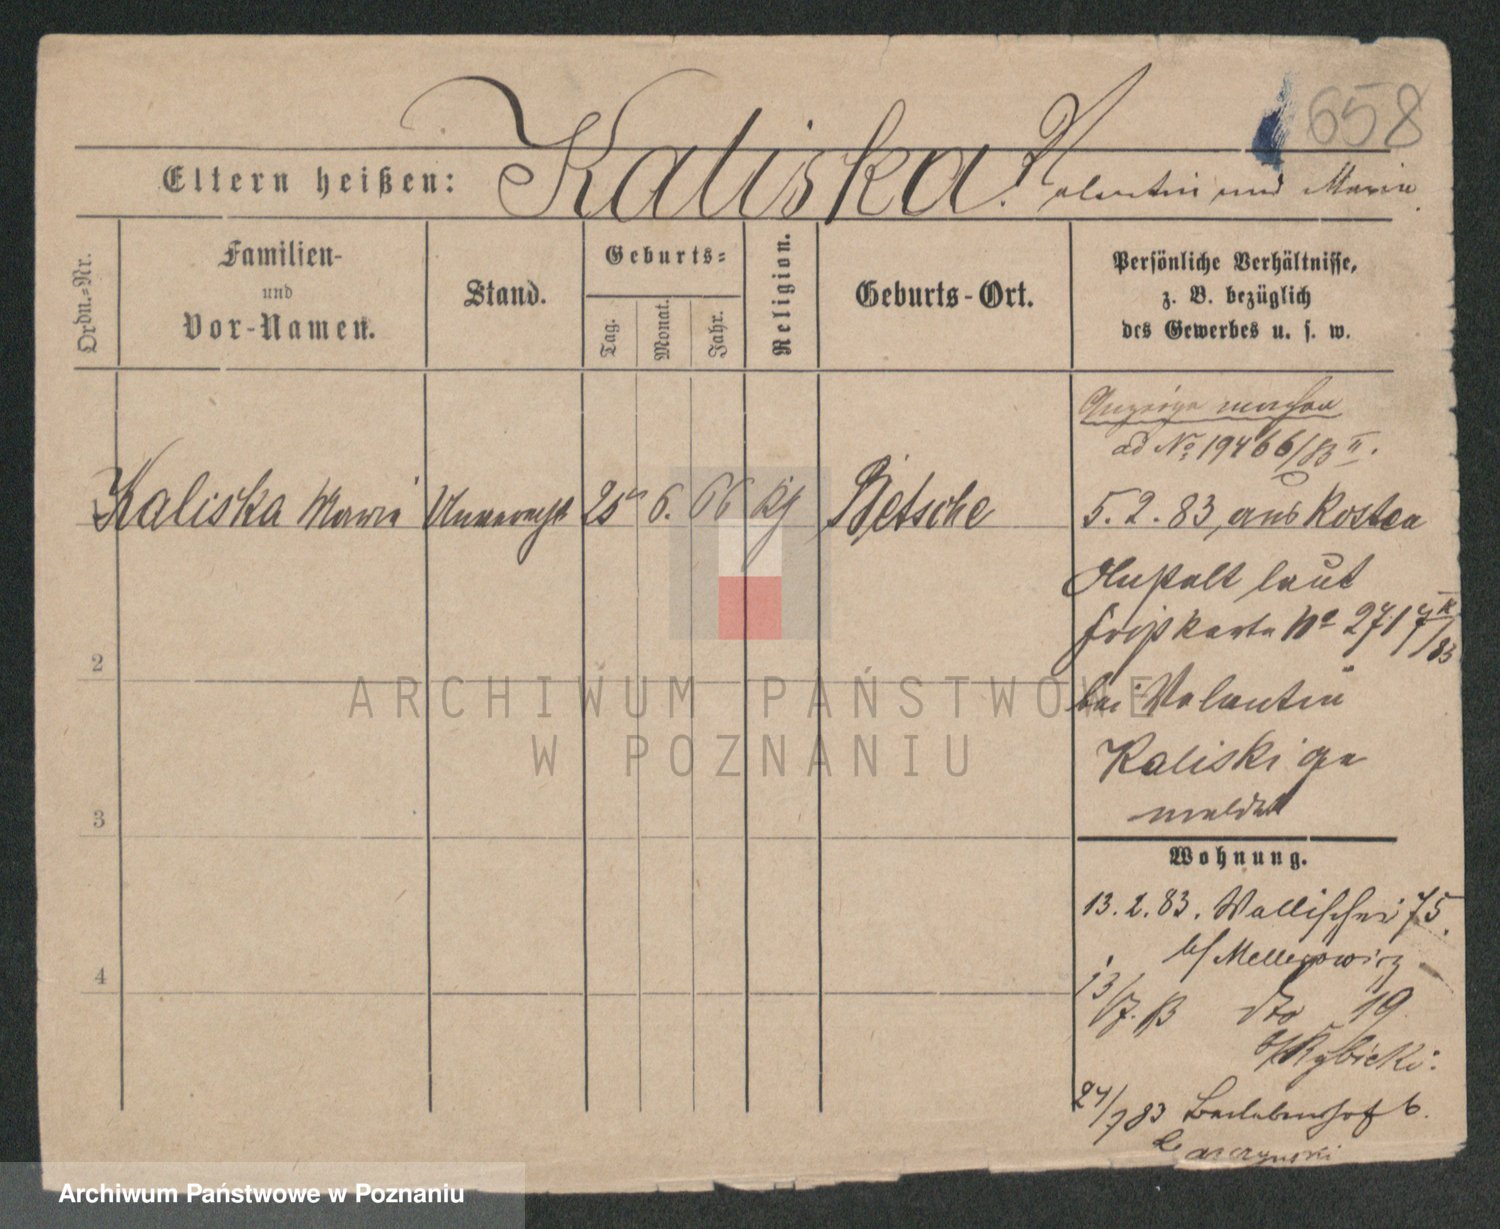 658
Kaliska.
Eltern heißen: Valentin und Marie.
Ordn.-Nr.
Familien-
und
Vor-Namen.
Stand.
Geburts-
Tag.
Monat.
Jahr.
Religion.
Geburts-Ort.
Persönliche Verhältnisse,
z. B. bezüglich
des Gewerbes u. s. w.
ad No 19466/83 II.
Kaliska Marie Unverehl 25 6. 66 Betsche
5.2.83, aus Kosten
Anstalt laut
No 2717
bei Valentin
Kaliski ge
meldet
2
3
4
Wohnung.
13.2.83. Wallischei 75.
b/
13/7. 83 dto 19
b/ Rybicki.
24/7 83 6.
ARCHIWUM PAŃSTWOWE
W POZNANIU
Archiwum Państwowe w Poznaniu